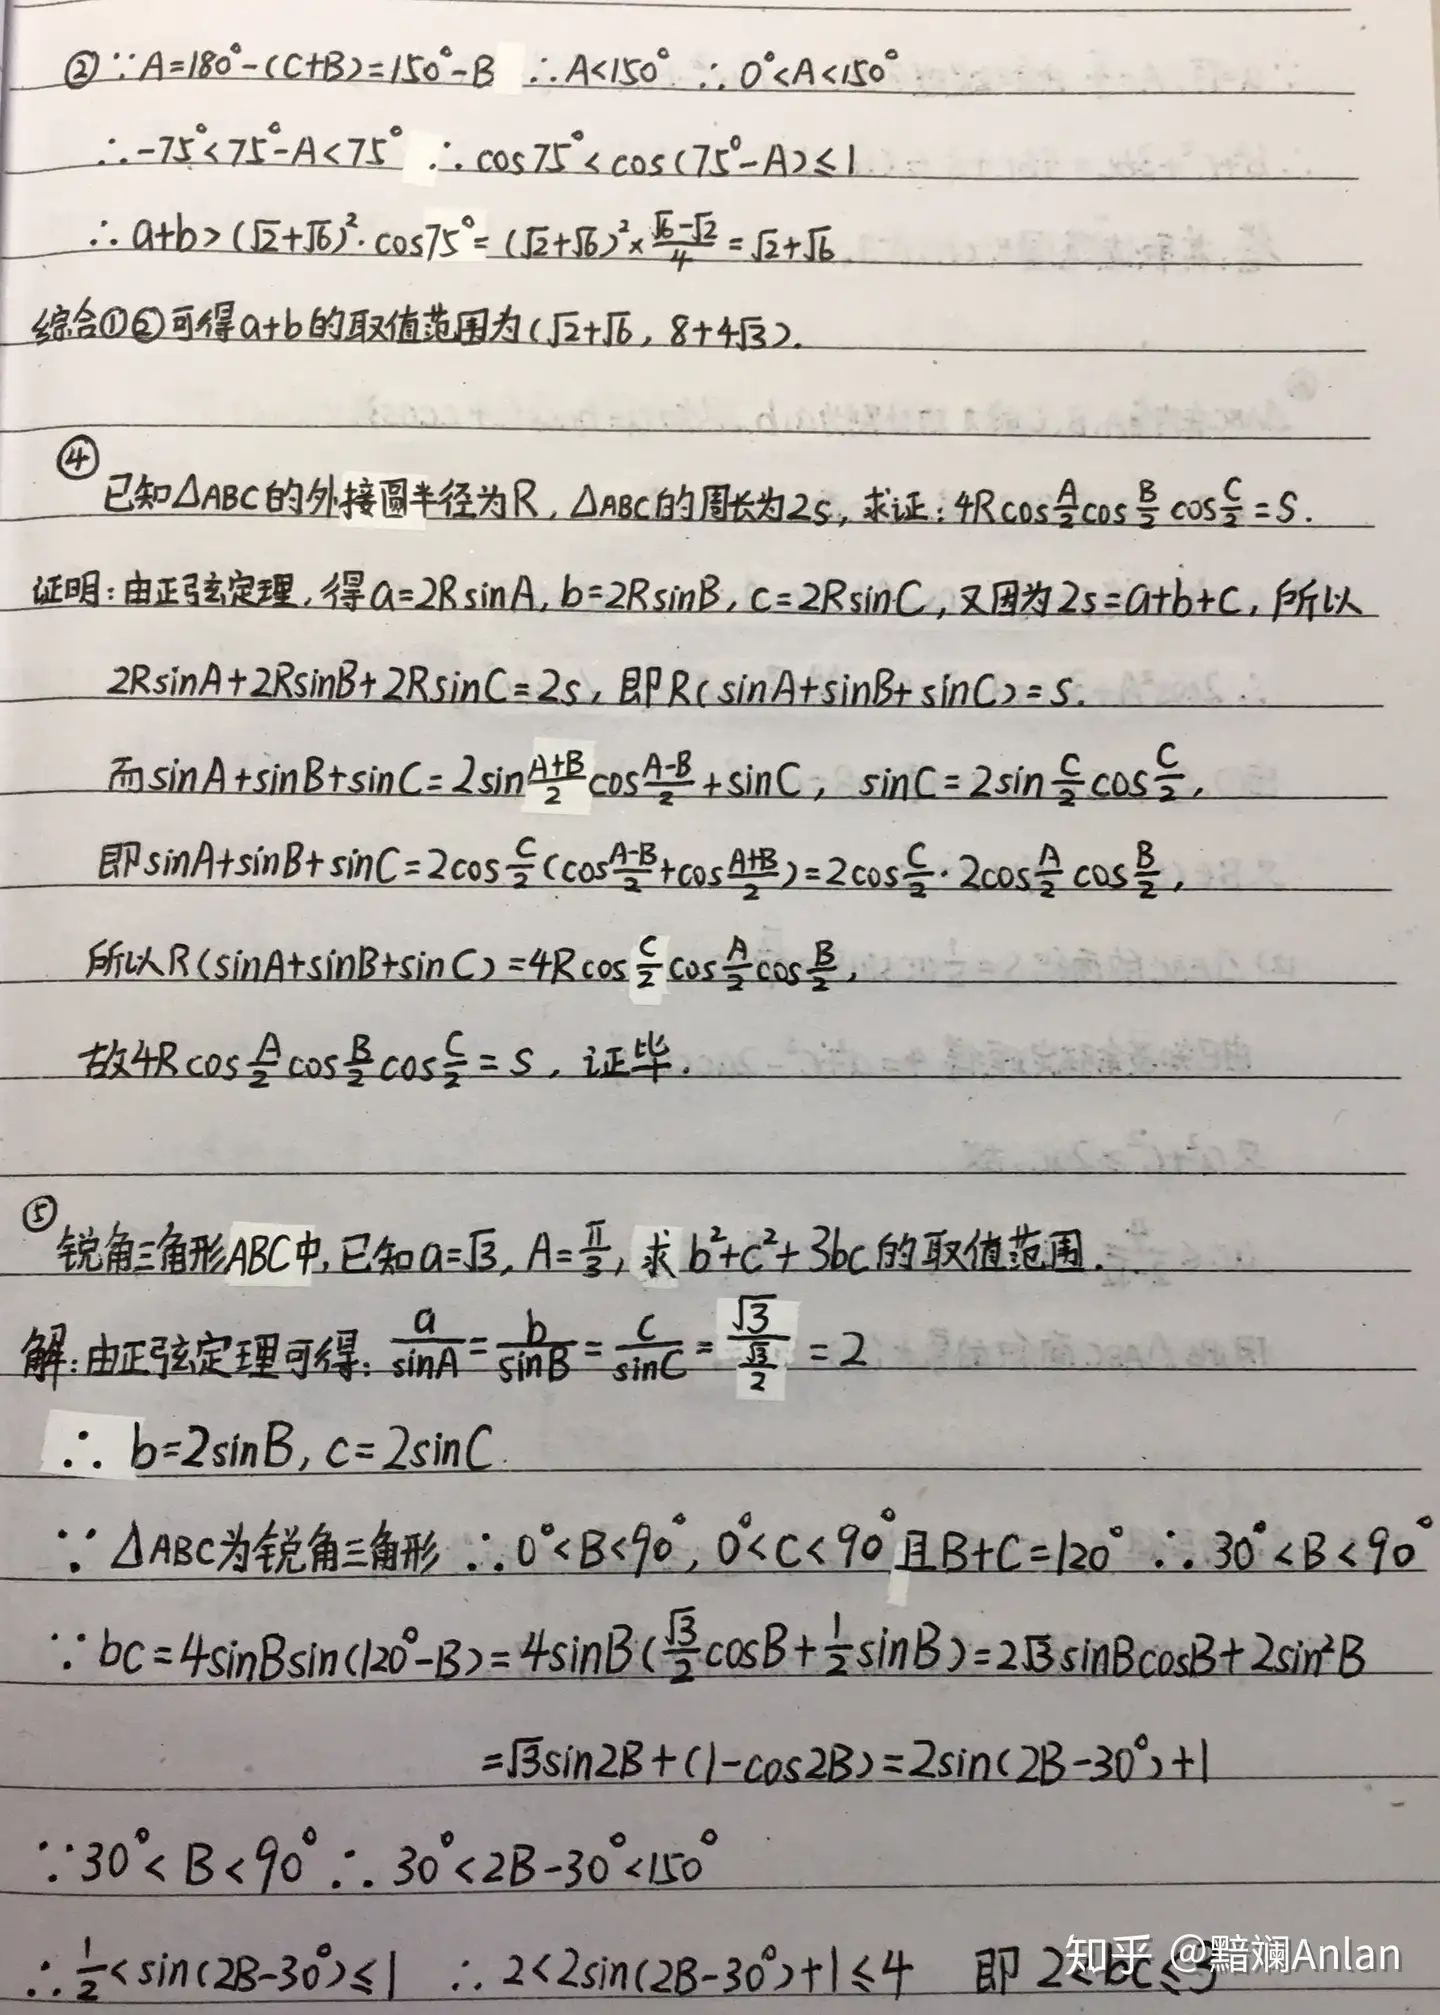 ②∵A=180°-(C+B)=150°-B ∴A<150° ∴0°<A<150°
∴-75°<75°-A<75° ∴cos75°<cos(75°-A)≤1
∴a+b>(√2+√6)²·cos75°=(√2+√6)²×(√6-√2)/4=√2+√6
综合①②可得a+b的取值范围为(√2+√6, 8+4√3).
④
已知△ABC的外接圆半径为R, △ABC的周长为2s, 求证: 4Rcos A/2 cos B/2 cos C/2 = S.
证明:由正弦定理,得a=2RsinA, b=2RsinB, c=2RsinC, 又因为2s=a+b+c, 所以
2RsinA+2RsinB+2RsinC=2s, 即R(sinA+sinB+sinC)=s.
而sinA+sinB+sinC=2sin (A+B)/2 cos (A-B)/2 +sinC, sinC=2sin C/2 cos C/2,
即sinA+sinB+sinC=2cos C/2 (cos (A-B)/2 +cos (A+B)/2)=2cos C/2·2cos A/2 cos B/2,
所以R(sinA+sinB+sinC)=4Rcos C/2 cos A/2 cos B/2,
故4Rcos A/2 cos B/2 cos C/2 = S, 证毕.
⑤
锐角三角形ABC中,已知a=√3, A=π/3, 求b²+c²+3bc的取值范围.
解:由正弦定理可得: a/sinA = b/sinB = c/sinC = √3/(√3/2) = 2
∴ b=2sinB, c=2sinC.
∵ △ABC为锐角三角形 ∴0°<B<90°, 0°<C<90°且B+C=120° ∴30°<B<90°
∵bc=4sinBsin(120°-B)=4sinB(√3/2 cosB+1/2 sinB)=2√3sinBcosB+2sin²B
=√3sin2B+(1-cos2B)=2sin(2B-30°)+1
∵30°<B<90° ∴30°<2B-30°<150°
∴1/2<sin(2B-30°)≤1 ∴2<2sin(2B-30°)+1≤4 即2<bc≤3
知乎 @黯斓Anlan